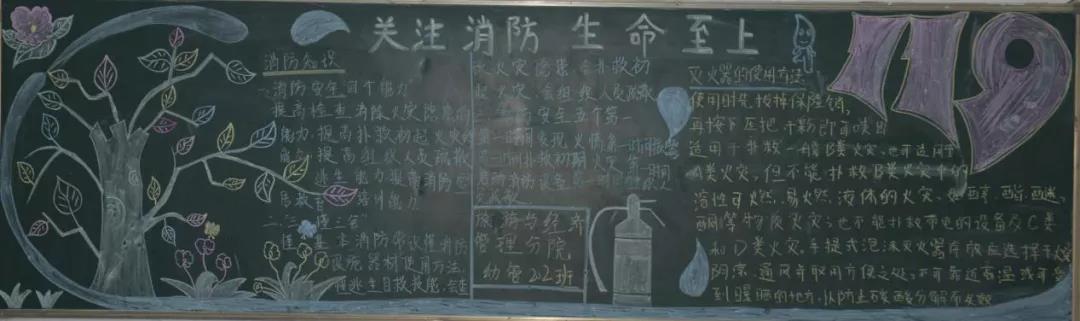 关注消防 生命至上
119
消防知识
一、消防安全四个能力
提高检查消除火灾隐患的
能力、提高扑救初起火灾的
能力、提高组织人员疏散
逃生能力提高消防宣
传教育培训能力
二、三懂三会
懂基本消防常识懂消防
设施器材使用方法
懂逃生自救技能,会查
火灾隐患、会扑救初
起火灾、会组织人员疏散
三、消防安全五个第一
第一时间发现火情第一时间报警
第一时间扑救初期火灾、第一
时间启动消防设备第一时间人
旅游与经济
管理分院
幼管202班
灭火器的使用方法
使用时先拔掉保险销,
再按下压把干粉即可喷出
适用于扑救一般B类火灾,也可适用于
A类火灾,但不能扑救B类火灾中的
溶性可燃、易燃、液体的火灾,如醇、酯、醚、
酮等物质火灾;也不能扑救带电的设备及C类
和D类火灾。手提式泡沫灭火器存放应选择干燥、
阴凉、通风并取用方便之处,不可靠近高温或可能受
到曝晒的地方,以防止碳酸分解而失效